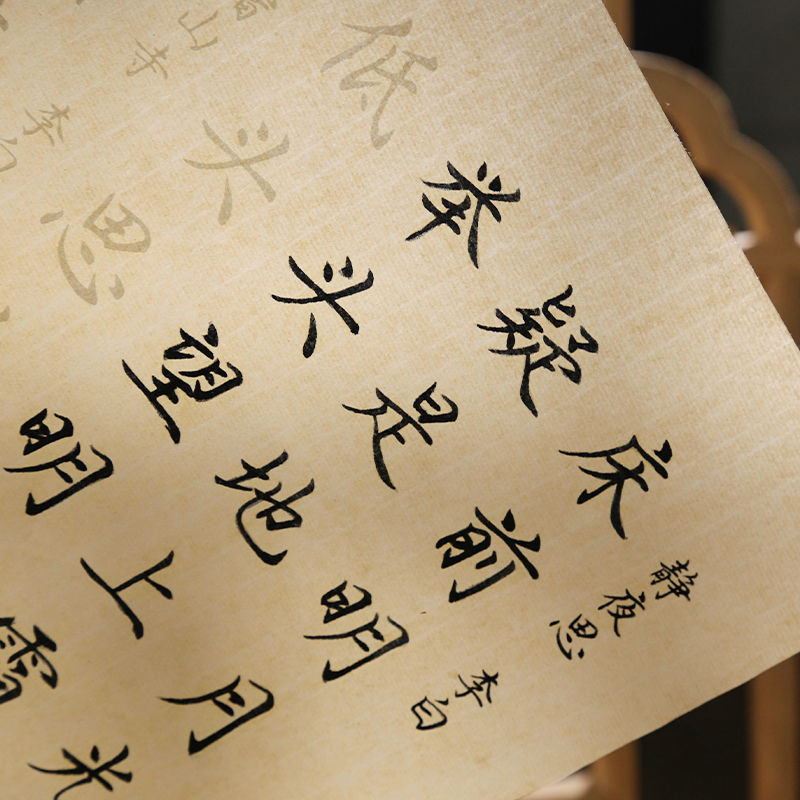 静夜思
李白
床前明月光
疑是地上霜
举头望明
低头思
宿山寺
李白